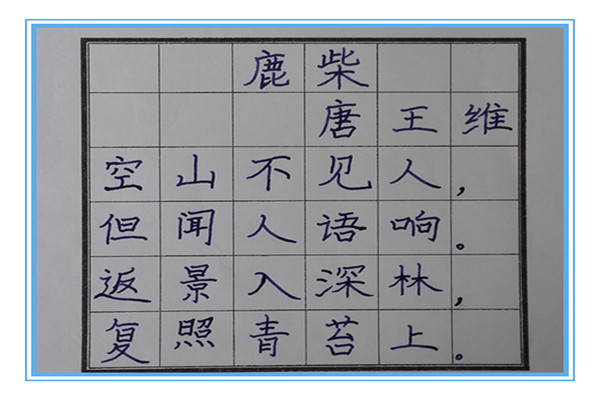 鹿柴
唐王维
空山不见人，
但闻人语响。
返景入深林，
复照青苔上。